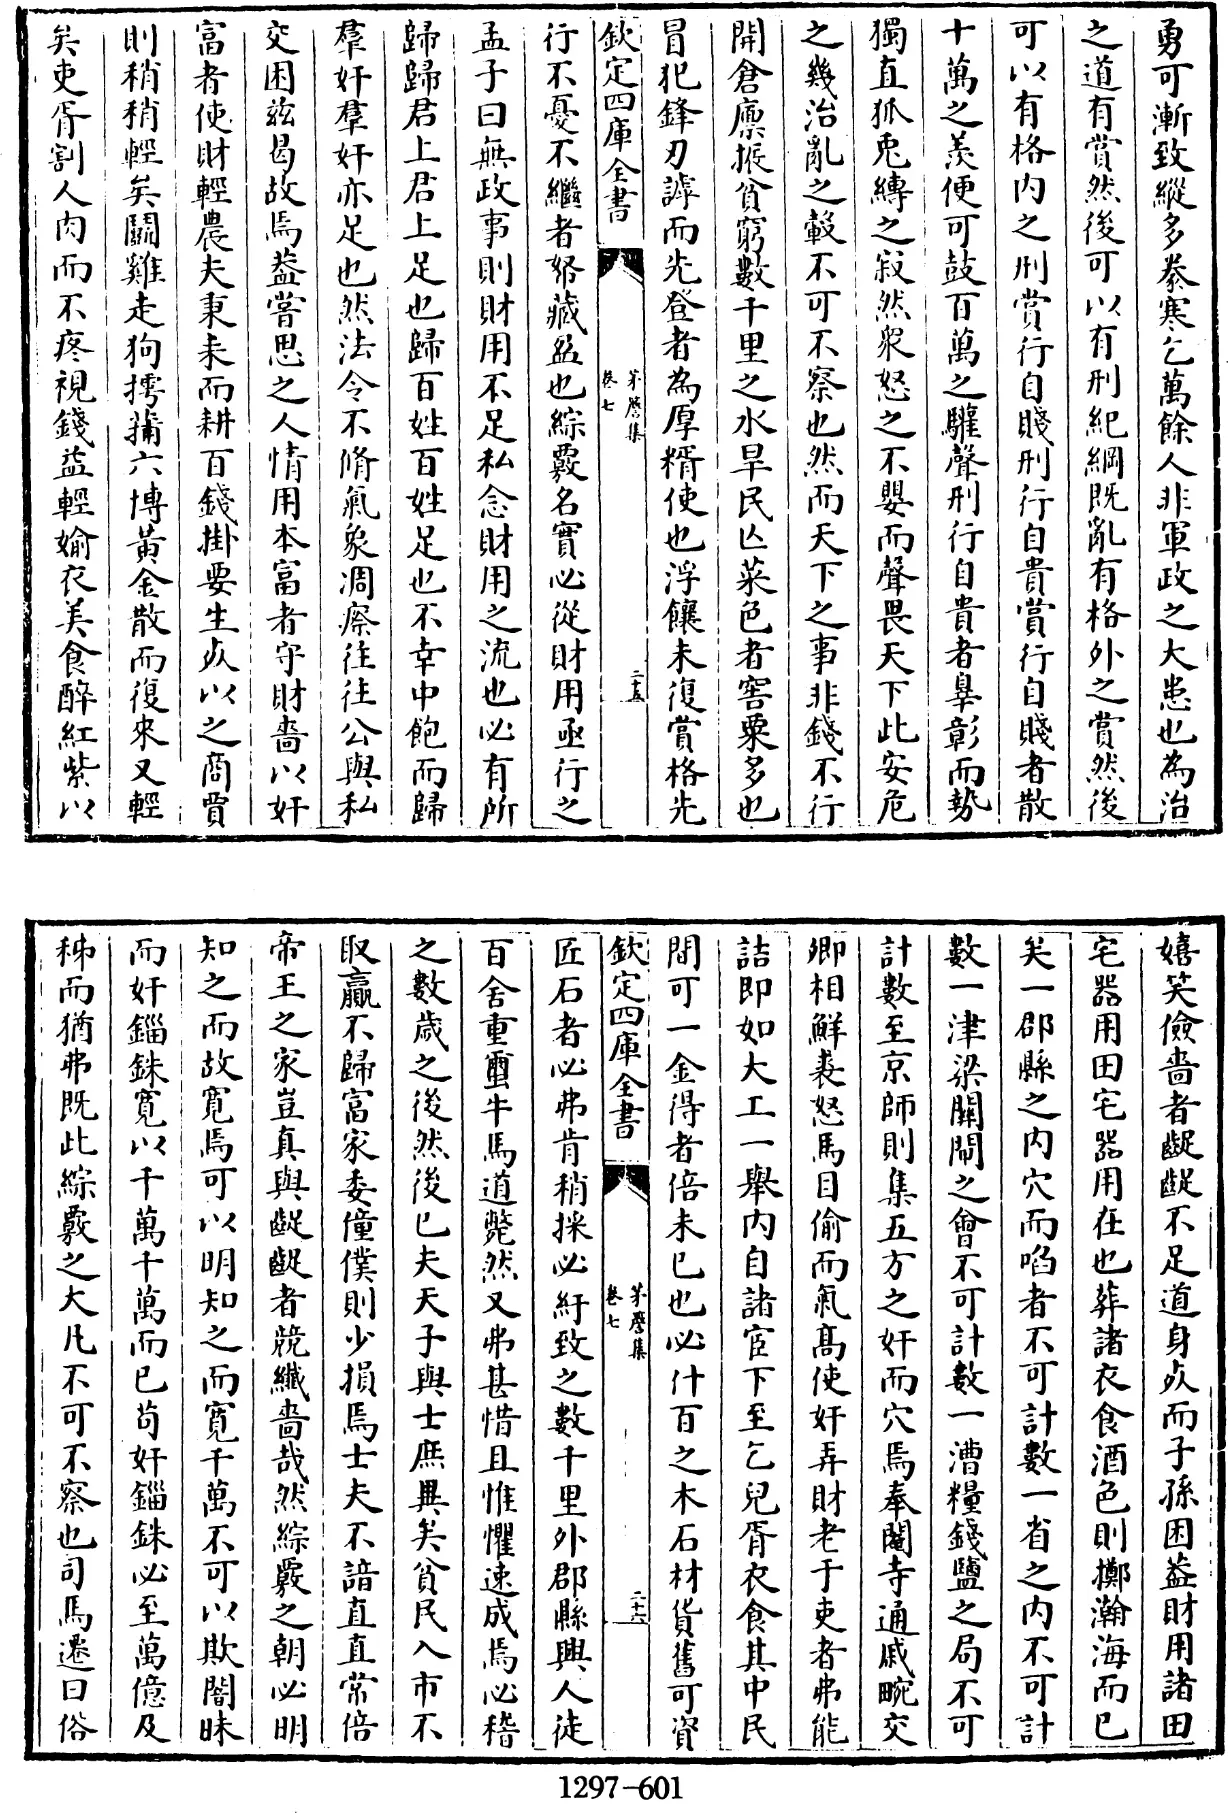 勇可漸致縱多豢寒乞萬餘人非軍政之大患也為治
之道有賞然後可以有刑紀綱既亂有格外之賞然後
可以有格内之刑賞行自賤刑行自貴賞行自賤者散
十萬之羨便可鼓百萬之驩聲刑行自貴者辠彰而勢
獨直狐兎縳之寂然衆怒之不嬰而聲畏天下此安危
之幾治亂之轂不可不察也然而天下之事非錢不行
開倉廪振貧窮數千里之水旱民亾菜色者窖粟多也
冒犯鋒刃謼而先登者為厚糈使也浮饟未復賞格先
欽定四庫全書
茅簷集
卷七
二十五
行不憂不繼者帑藏盈也綜覈名實必從財用亟行之
孟子曰無政事則財用不足私念財用之流也必有所
歸歸君上君上足也歸百姓百姓足也不幸中飽而歸
羣奸羣奸亦足也然法令不脩氣象凋瘵往往公與私
交困兹曷故焉葢嘗思之人情用本富者守財嗇以奸
富者使財輕農夫秉耒而耕百錢掛要生㱔以之商賈
則稍稍輕矣鬭雞走狗摴蒱六博黄金散而復來又輕
矣吏胥割人肉而不疼視錢益輕媮衣美食醉紅紫以
嬉笑儉嗇者齷齪不足道身㱔而子孫困葢財用諸田
宅器用田宅器用在也葬諸衣食酒色則擲瀚海而已
矣一郡縣之内穴而啗者不可計數一省之内不可計
數一津梁關閘之會不可計數一漕糧錢鹽之局不可
計數至京師則集五方之奸而穴焉奉閹寺通戚畹交
卿相鮮裘怒馬目偷而氣髙使奸弄財老于吏者弗能
詰即如大工一舉内自諸宦下至乞兒胥衣食其中民
間可一金得者倍未已也必什百之木石材貨舊可資
欽定四庫全書
茅簷集
卷七
二十六
匠石者必弗肯稍採必紆致之數千里外郡縣興人徒
百舍重蠒牛馬道斃然又弗甚惜且惟懼速成焉必稽
之數歲之後然後已夫天子與士庶異矣貧民入市不
取贏不歸富家委僮僕則少損焉士夫不諳直直常倍
帝王之家豈真與齷齪者競纖嗇哉然綜覈之朝必明
知之而故寛焉可以明知之而寛千萬不可以欺闇昧
而奸錙銖寛以千萬千萬而已苟奸錙銖必至萬億及
秭而猶弗既此綜覈之大凡不可不察也司馬遷曰俗
1297-601